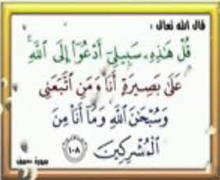 قال الله تعالى :
قُلْ هَٰذِهِۦ سَبِيلِىٓ أَدْعُوٓا۟ إِلَى ٱللَّهِ ۚ
عَلَىٰ بَصِيرَةٍ أَنَا۠ وَمَنِ ٱتَّبَعَنِى
وَسُبْحَٰنَ ٱللَّهِ وَمَآ أَنَا۠ مِنَ
ٱلْمُشْرِكِينَ ١٠٨
سورة يوسف